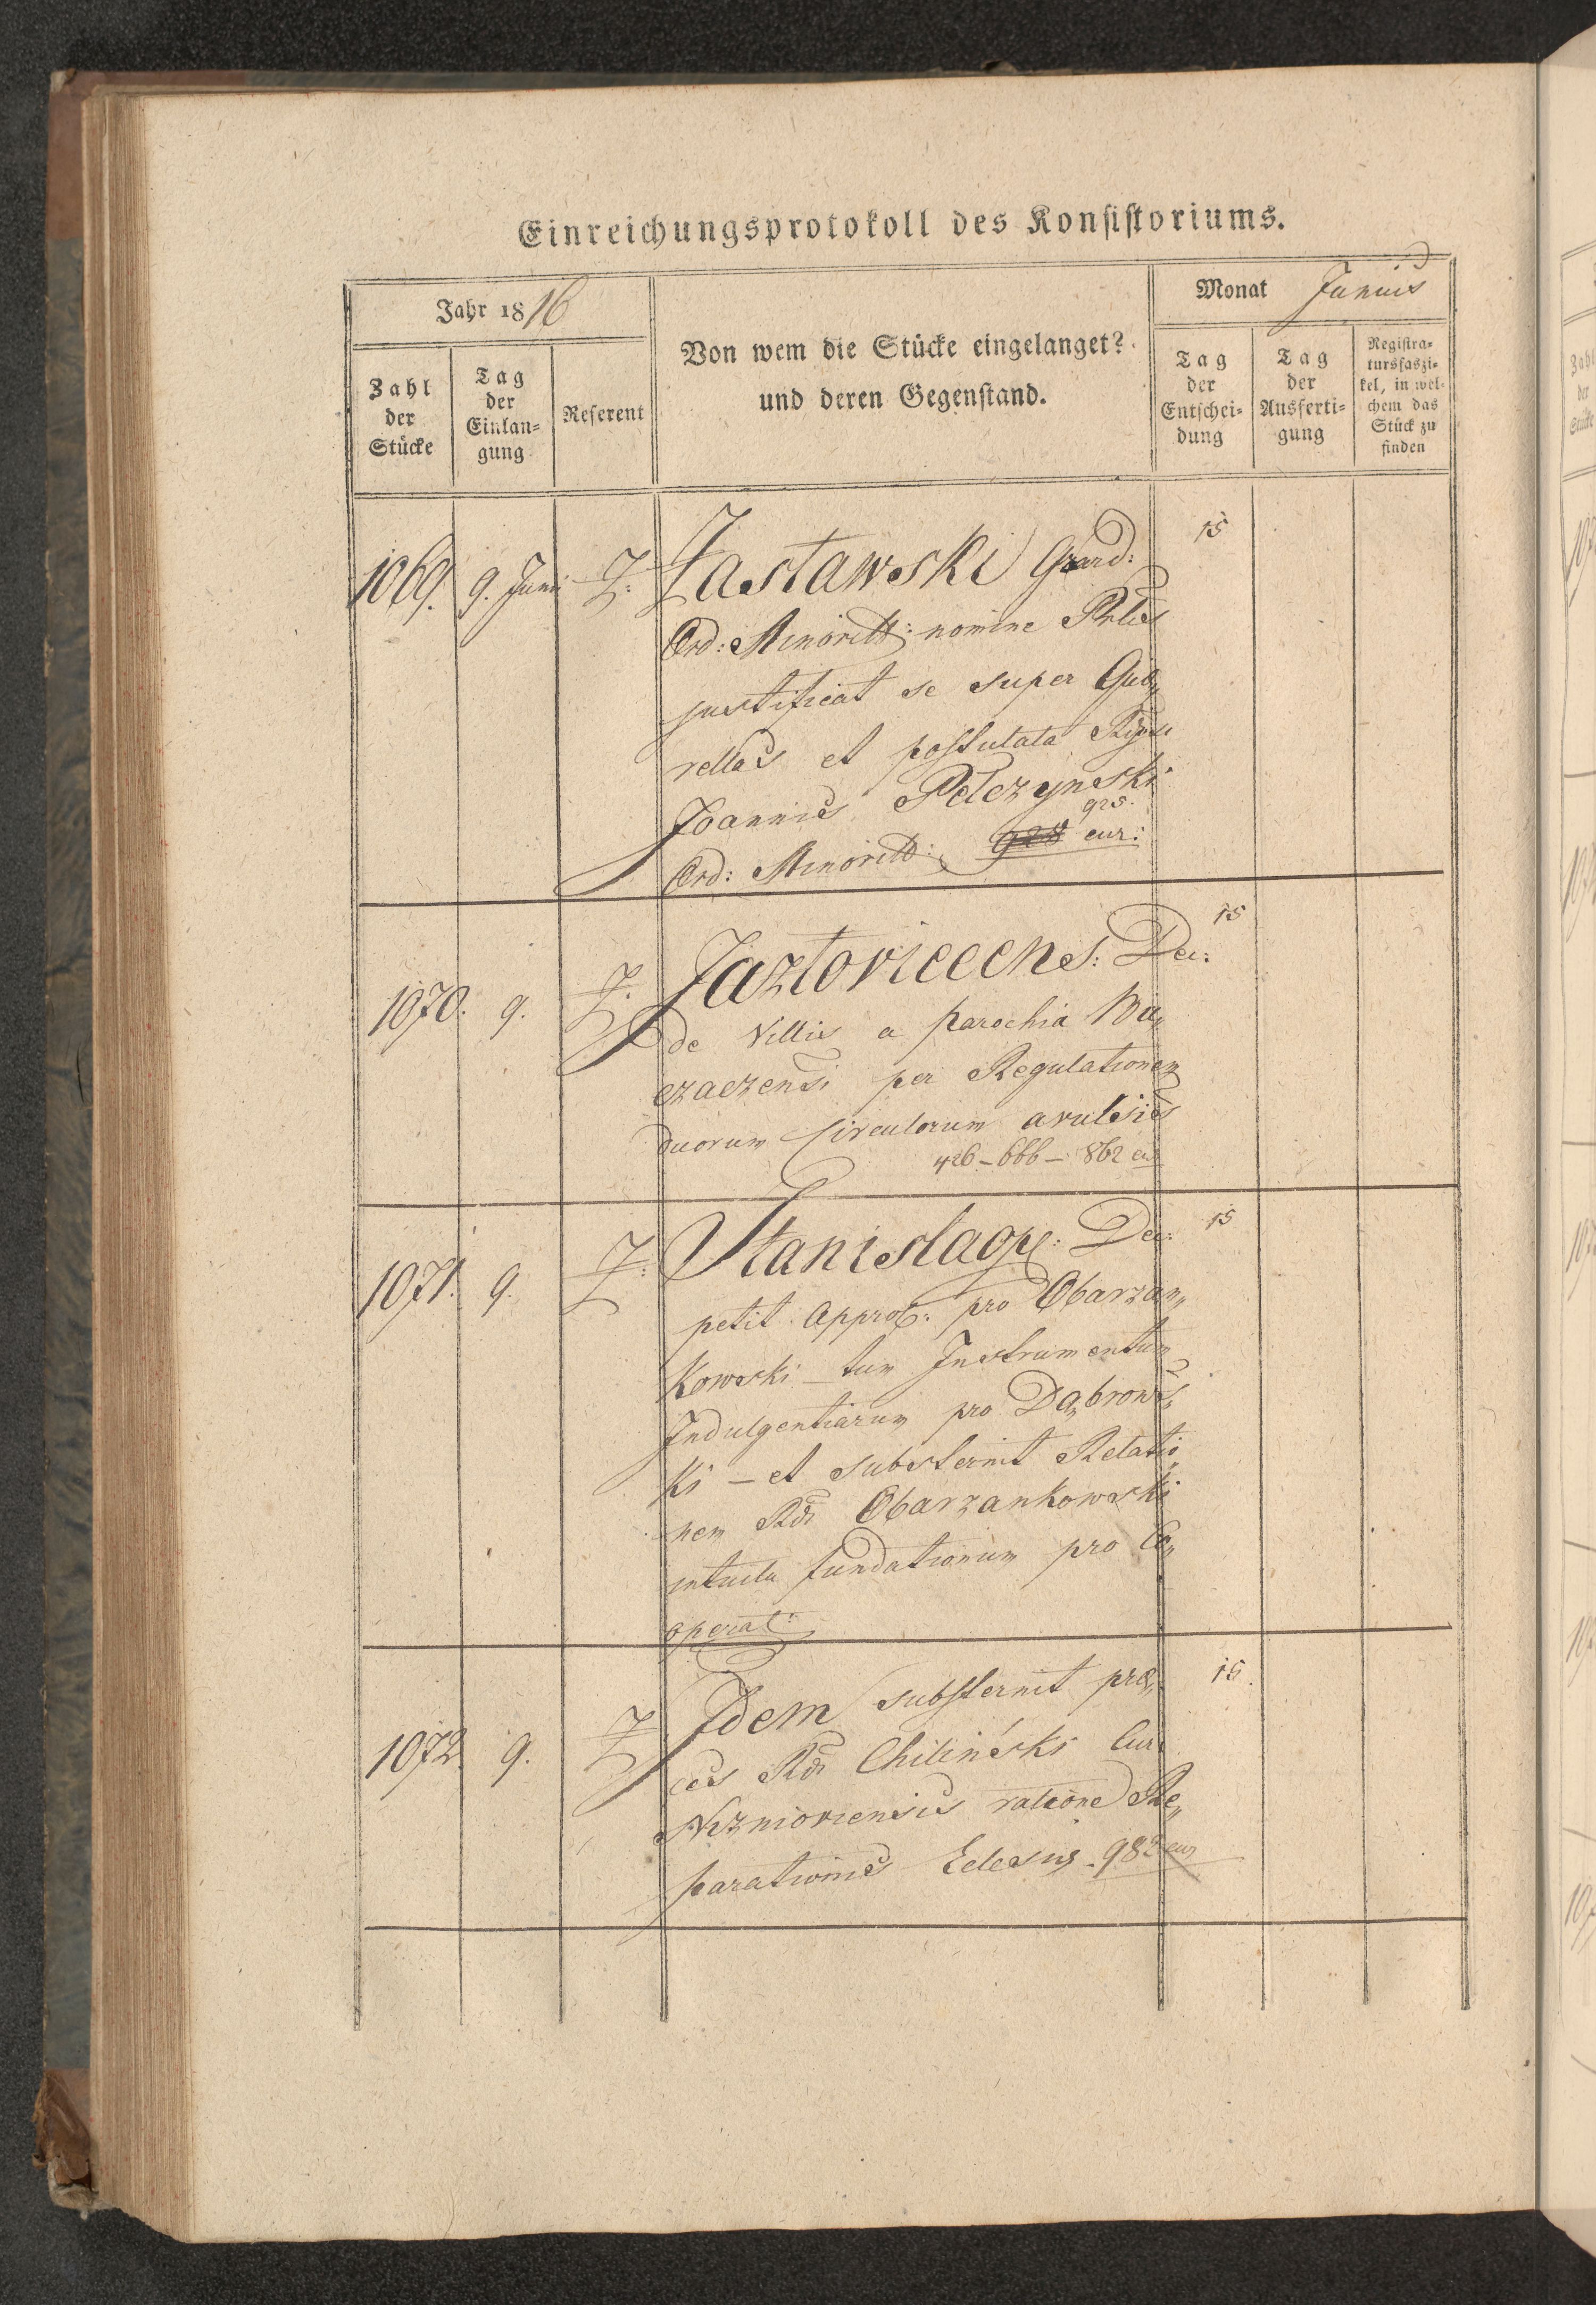 Einreichungsprotokoll des Konsistoriums.
Jahr 1816
Monat Junius
Zahl der Stücke
Tag der Einlangung
Referent
Von wem die Stücke eingelanget?
und deren Gegenstand.
Tag der Entscheidung
Tag der Ausfertigung
Registratursfaszikel, in welchem das Stück zu finden
1069. 9. Juni Z: Zasławski Guard: 15
Ord: Minoritt: nomine
justificat se super Que„
rellas et postulata
Joannis Pelczynski
925.
Ord: Minoritt: 928 cur:
1070. 9. Z. Jazłoviecens: Dec: 15
de Villis a parochia Bu„
czaczensi per Regulationem
duorum Circulorum avulsis
426 – 666 – 862 cur
1071. 9. Z: Stanislaop: Dec: 15
petit Approb: pro Obarzan„
kowski – tum Instrumentum
Indulgentiarum pro Dąbrows„
ki – et substernit Relatio„
nem Rdi Obarzankowski
intuitu fundationum pro Co„
operat:
1072. 9. Z Idem substernit pre„ 15.
ces Rdi Chiliński Cur:
Niznioviensis ratione Re„
parationis Eclesiӕ 982 cur